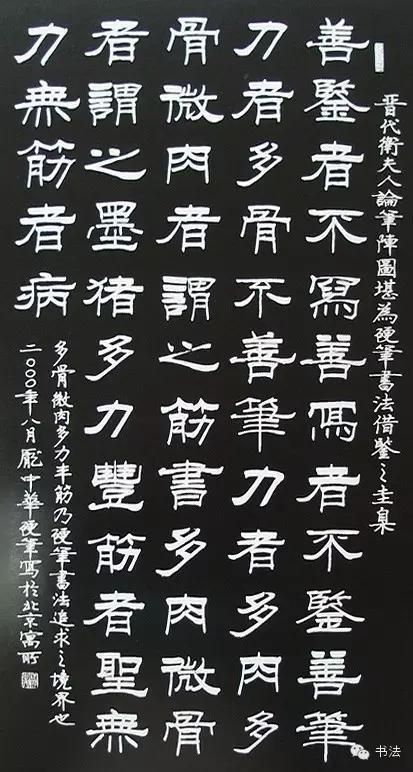 晉代衛夫人論筆陣圖堪為硬筆書法借鑒之圭臬
善鑒者不寫善寫者不鑒善筆
力者多骨不善筆力者多肉多
骨微肉者謂之筋書多肉微骨
者謂之墨猪多力豐筋者聖無
力無筋者病
多骨微肉多力丰筋乃硬筆書法追求之境界也
二〇〇〇年八月龐中華硬筆寫於北京寓所
书法